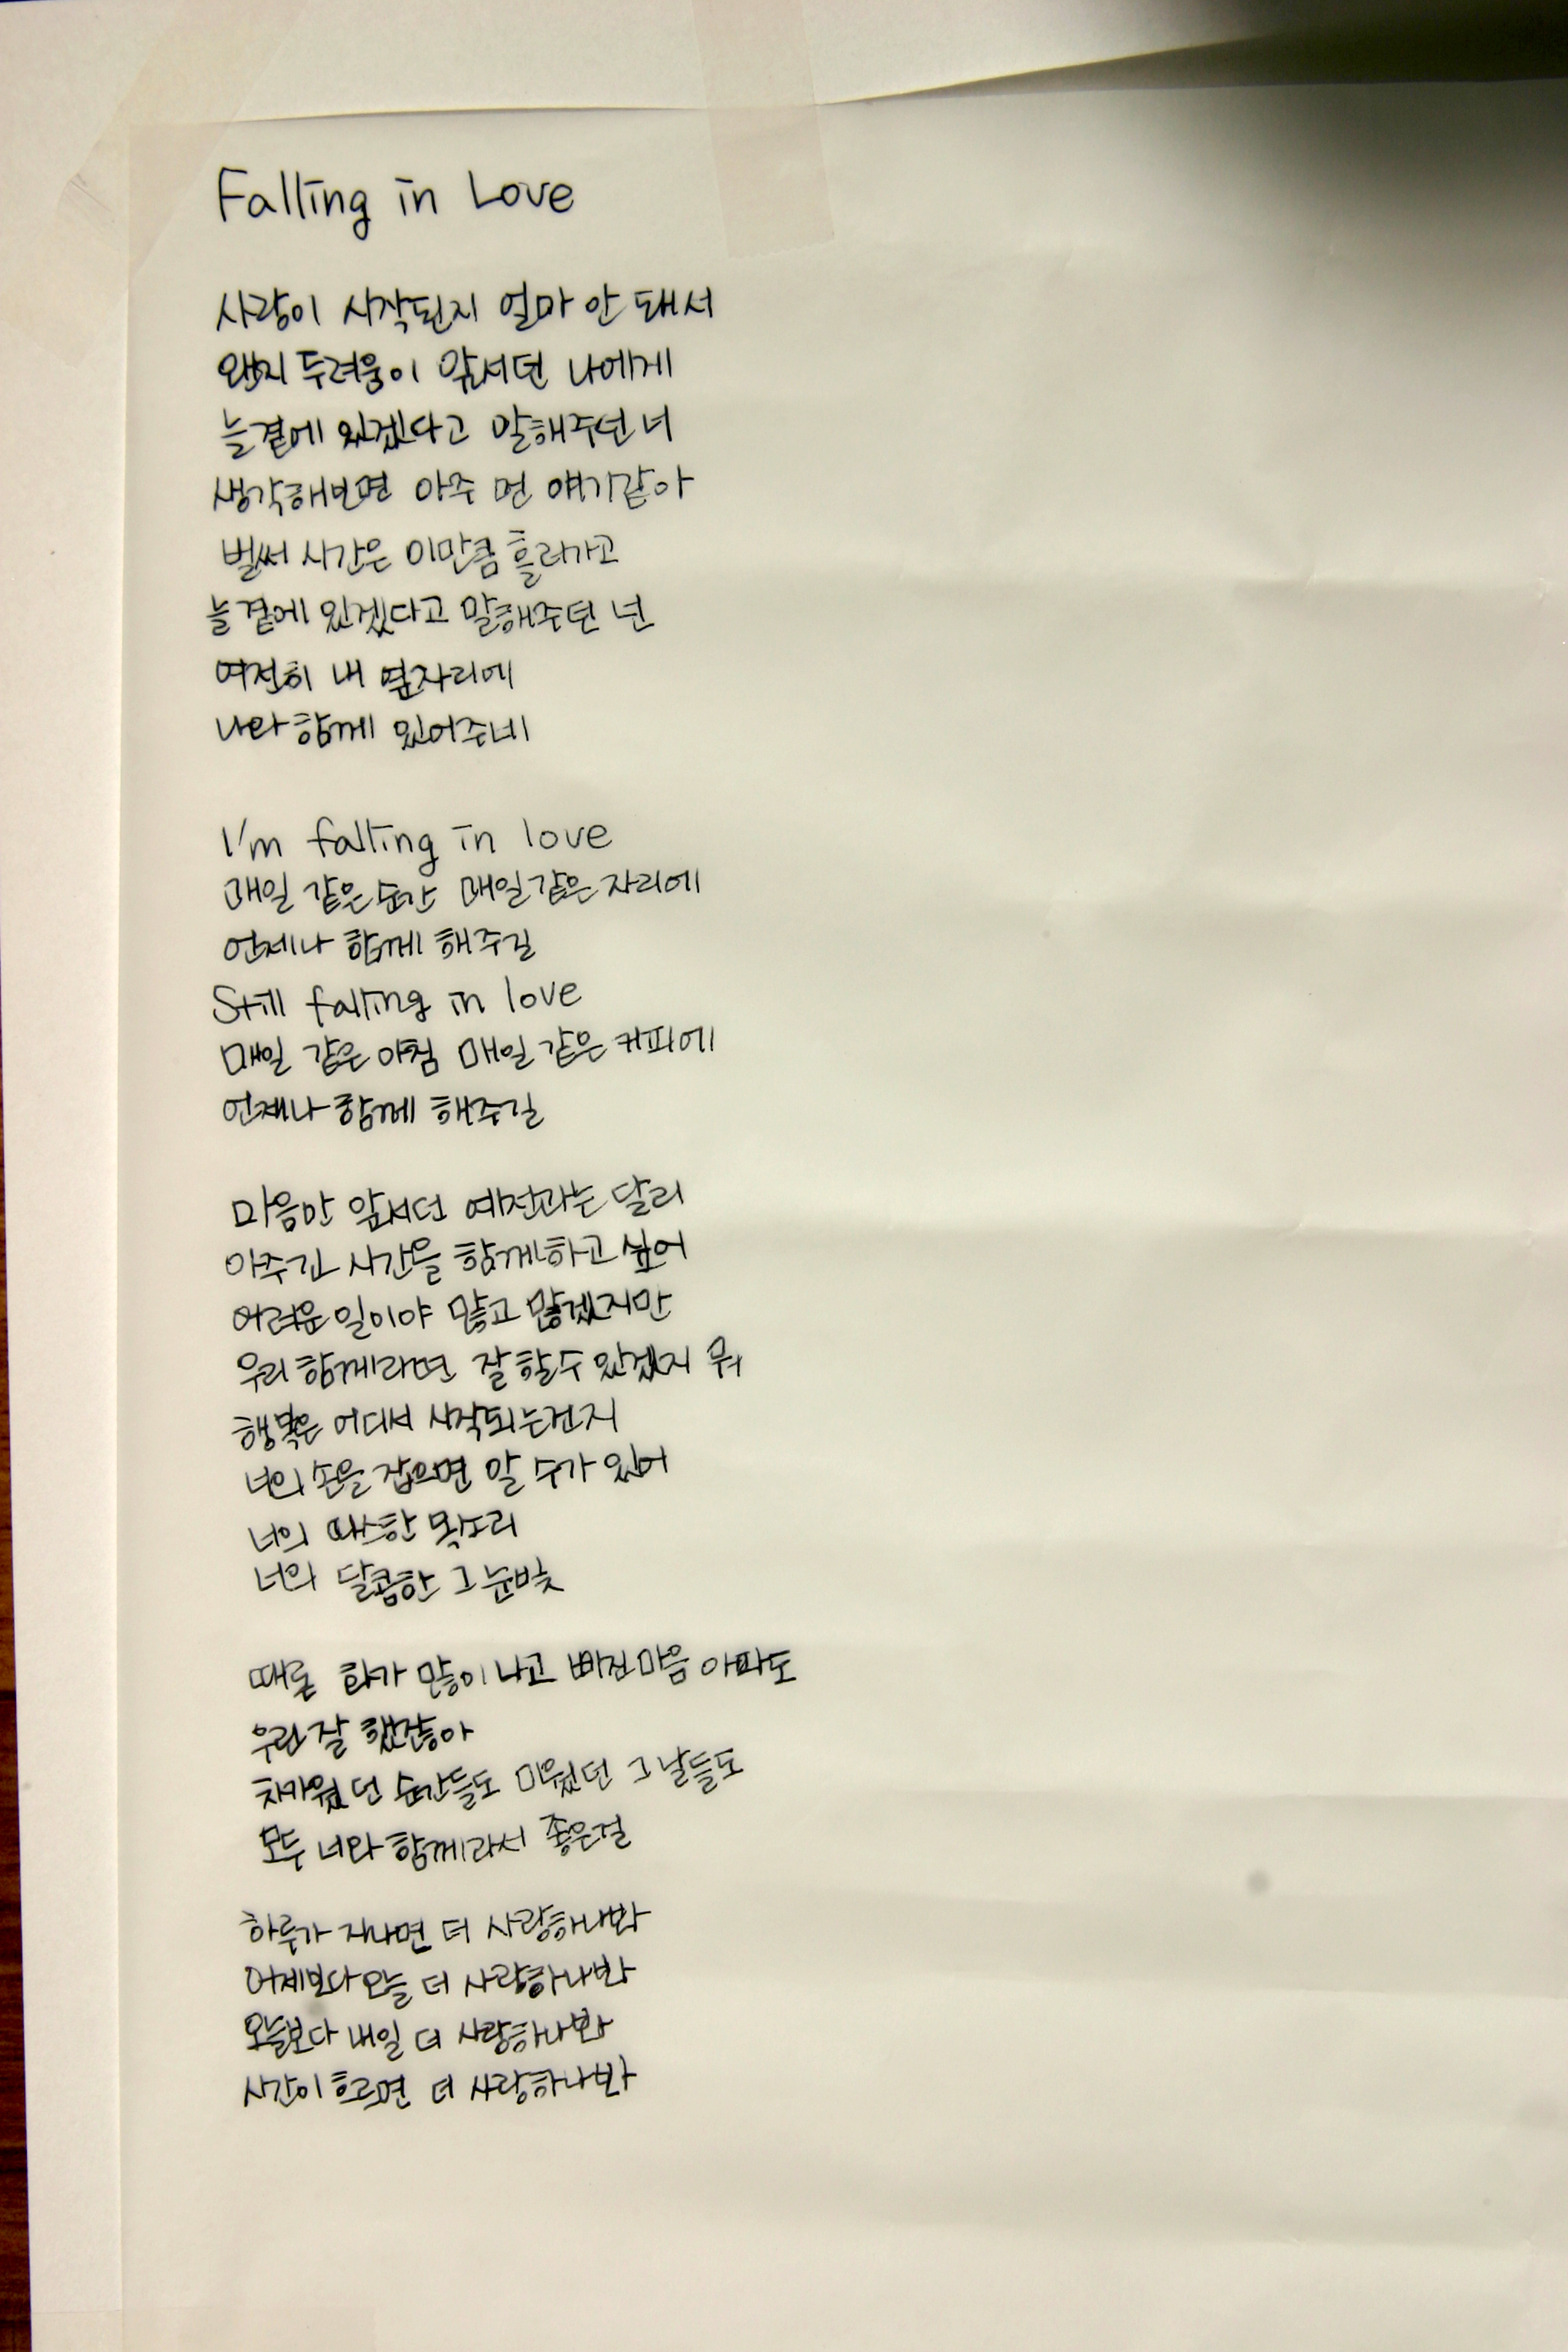 Falling in Love
사랑이 시작된지 얼마 안 돼서
왠지 두려움이 앞서던 나에게
늘 곁에 있겠다고 말해주던 너
생각해보면 아주 먼 얘기같아
벌써 시간은 이만큼 흘러가고
늘 곁에 있겠다고 말해주던 넌
여전히 내 옆자리에
나와 함께 있어주네
I'm falling in love
매일 같은 순간 매일 같은 자리에
언제나 함께 해주길
Still falling in love
매일 같은 아침 매일 같은 커피에
언제나 함께 해주길
마음만 앞서던 예전과는 달리
아주 긴 시간을 함께하고 싶어
어려운 일이야 많고 많겠지만
우리 함께라면 잘 할 수 있겠지 뭐
행복은 어디서 시작되는건지
너의 손을 잡으면 알 수가 있어
너의 따스한 목소리
너의 달콤한 그 눈빛
때론 화가 많이 나고 삐진 마음 아파도
우린 잘 했잖아
차가웠던 순간들도 미웠던 그 날들도
모두 너와 함께라서 좋은걸
하루가 지나면 더 사랑하나봐
어제보다 오늘 더 사랑하나봐
오늘보다 내일 더 사랑하나봐
시간이 흐르면 더 사랑하나봐